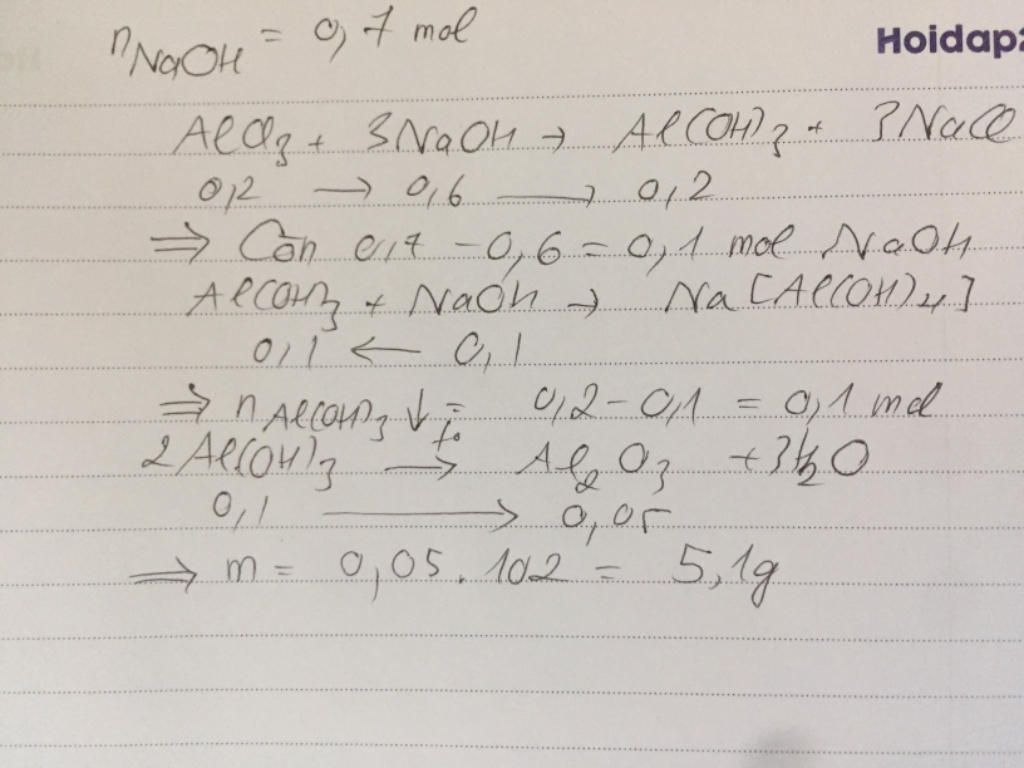 nNaOH = 0,7 mol
Hoidap2
AlCl3 + 3NaOH → Al(OH)3 + 3NaCl
0,2 → 0,6 → 0,2
⇒ Còn 0,7 - 0,6 = 0,1 mol NaOH
Al(OH)3 + NaOH → Na[Al(OH)4]
0,1 ← 0,1
⇒ n Al(OH)3 ↓ = 0,2 - 0,1 = 0,1 mol
2Al(OH)3 →t° Al2O3 + 3H2O
0,1 → 0,05
⇒ m = 0,05 . 102 = 5,1g